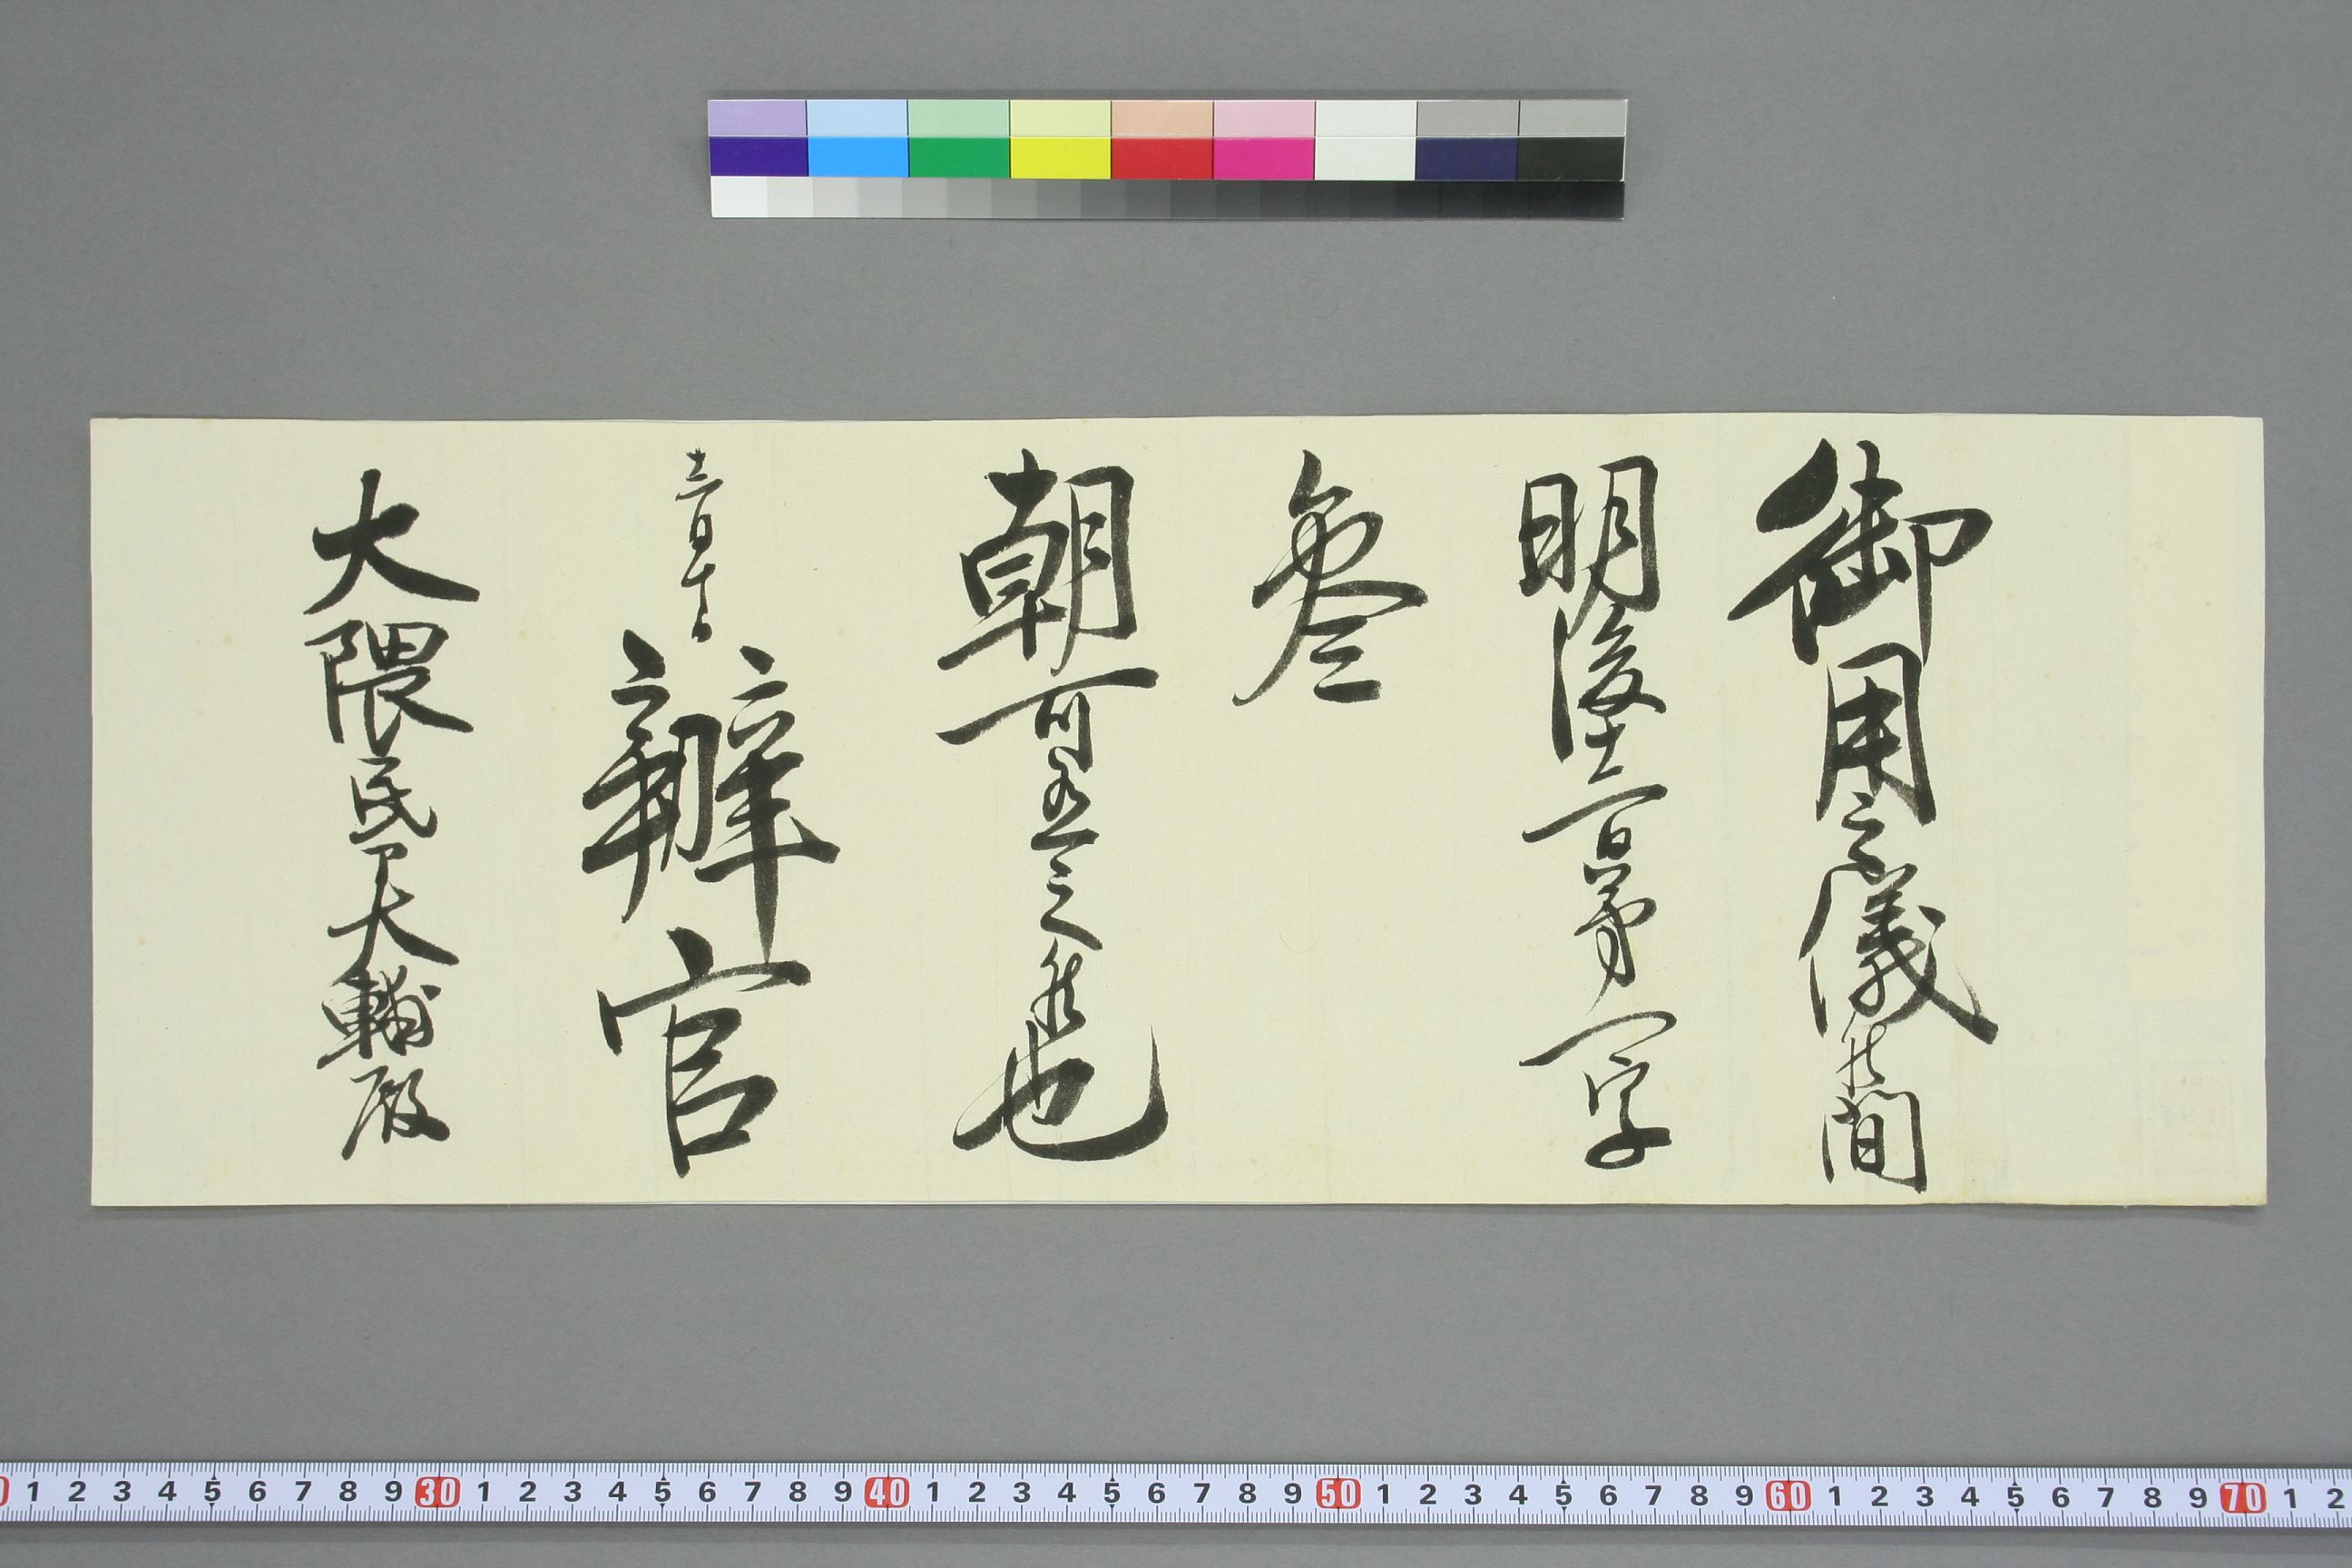 御用之儀候間
明後十二日第一字
參
朝可有之候也
十二月十日
辨官
大隈民部大輔殿
1 2 3 4 5 6 7 8 9 30 1 2 3 4 5 6 7 8 9 40 1 2 3 4 5 6 7 8 9 50 1 2 3 4 5 6 7 8 9 60 1 2 3 4 5 6 7 8 9 70 1 2